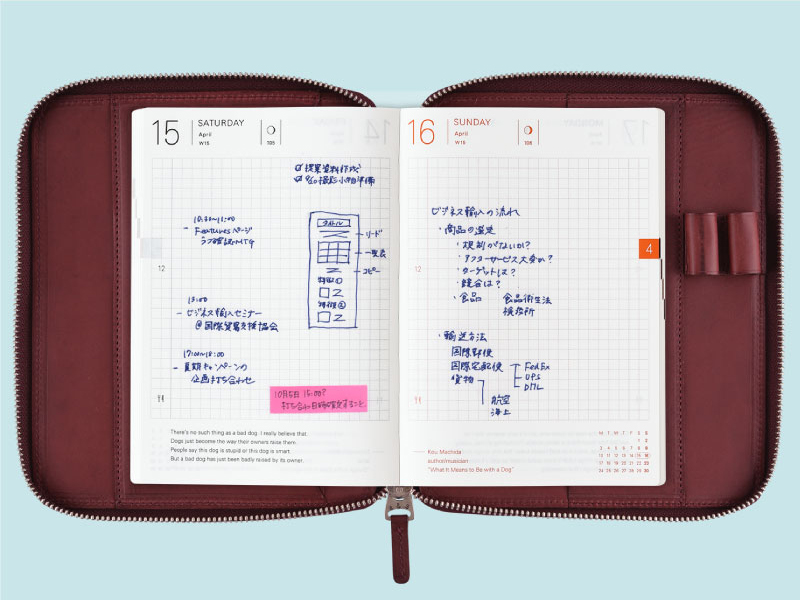 15
SATURDAY
April
W15
105
提案資料作成
撮影小物準備
10:30~11:00
Featuresページ
ラフ確認MTG
タイトル
リード
一覧表
コピー
特徴①
特徴②
12
13:00
ビジネス輸入セミナー
@国際貿易支援協会
17:00~18:00
夏期キャンペーンの
企画打ち合わせ
10月5日 15:00?
打ち合わせ日時確定すること
There's no such thing as a bad dog. I really believe that.
Dogs just become the way their owners raise them.
People say this dog is stupid or this dog is smart.
But a bad dog has just been badly raised by its owner.
16
SUNDAY
April
W15
106
ビジネス輸入の流れ
・商品の選定
・規制がないか?
・アフターサービス大変か?
・ターゲットは?
・競合は?
・食品 食品衛生法
検疫所
4
12
・輸送方法
国際郵便
国際宅配便 FedEx
UPS
DHL
貨物
航空
海上
Kou Machida
author/musician
"What It Means to Be with a Dog"
M T W T F S S
1 2
3 4 5 6 7 8 9
10 11 12 13 14 15 16
17 18 19 20 21 22 23
24 25 26 27 28 29 30